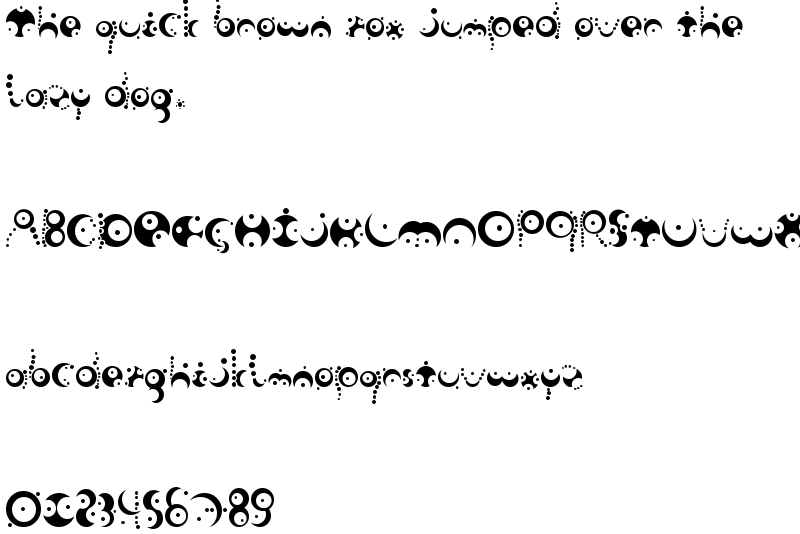 The quick brown fox jumped over the
lazy dog.
ABCDEFGHIJKLMNOPQRSTUVWX
abcdefghijklmnopqrstuvwxyz
0123456789